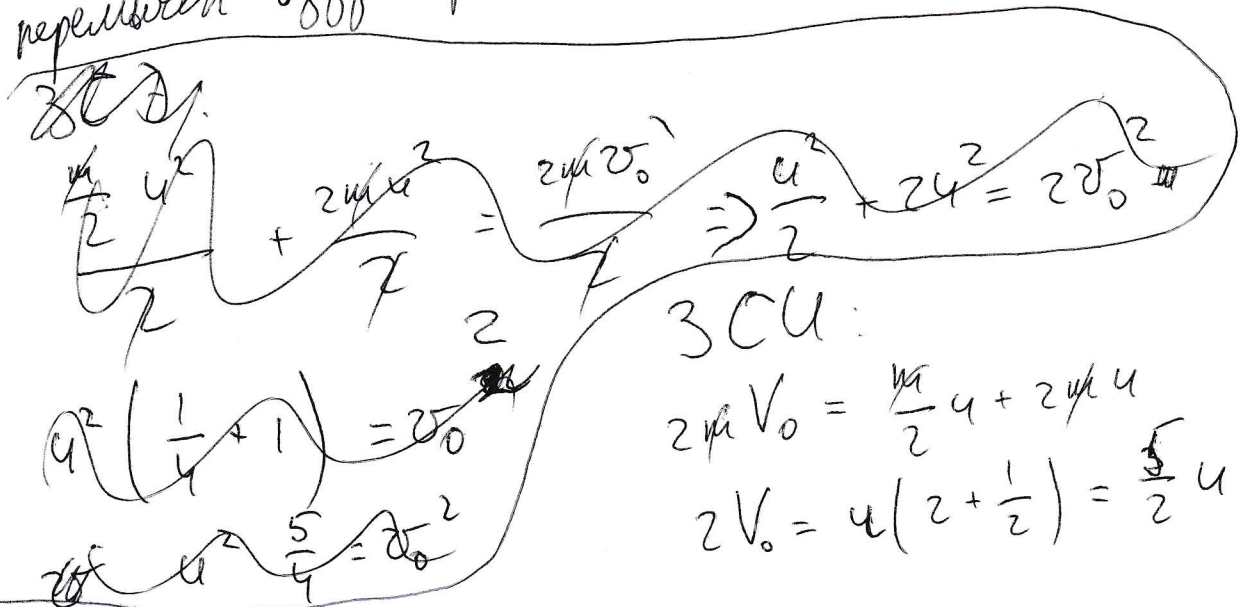 ЗСЭ:
\frac{\frac{m}{2} u^2}{2} + \frac{2mu^2}{2} = \frac{2mv_0^2}{2} => \frac{u^2}{2} + 2u^2 = 2v_0^2
u^2 ( \frac{1}{4} + 1 ) = v_0^2
u^2 \frac{5}{4} = v_0^2
ЗСИ:
2mV_0 = \frac{m}{2} u + 2mu
2V_0 = u ( 2 + \frac{1}{2} ) = \frac{5}{2} u